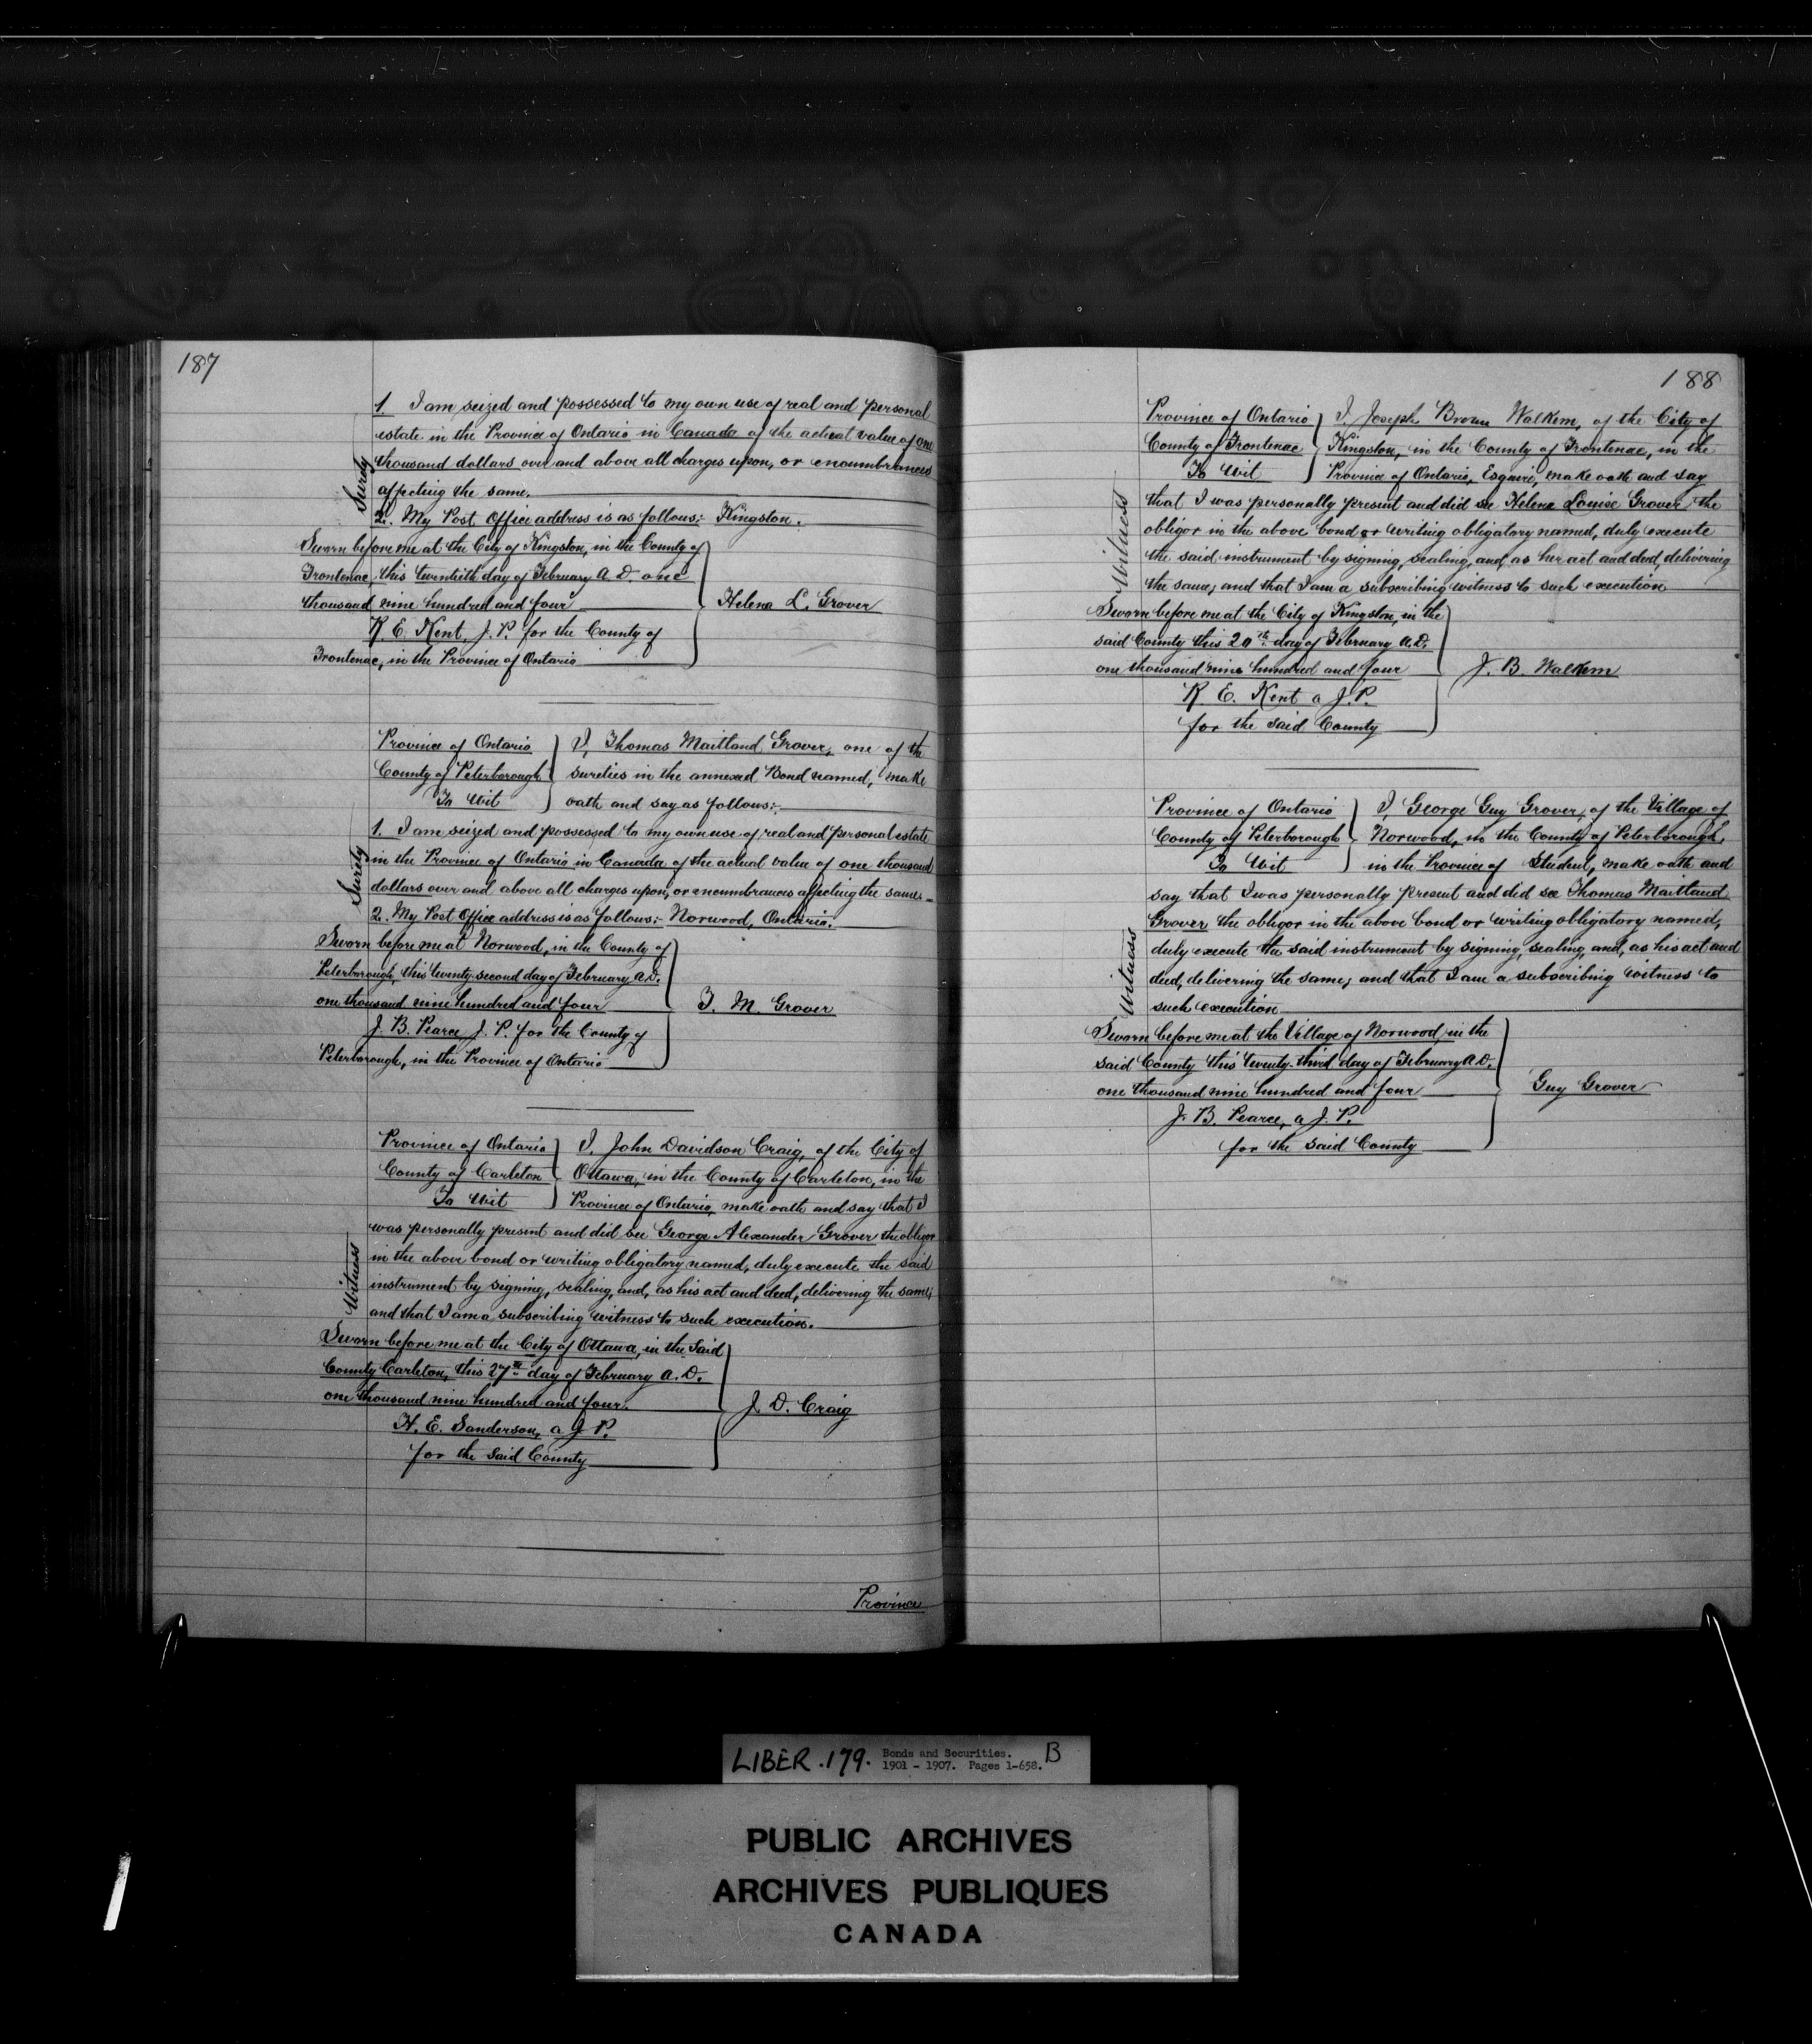 187
1. I am seized and possessed to my own use of real and personal
estate in the Province of Ontario in Canada of the actual value of one
thousand dollars over and above all charges upon, or encumbrances
affecting the same.
Surety
2. My Post Office address is as follows:- Kingston.
Sworn before me at the City of Kingston, in the County of
Frontenac, this twentieth day of February A.D. one
thousand nine hundred and four
Helena L. Grover
R. E. Kent, J. P. for the County of
Frontenac, in the Province of Ontario
Province of Ontario
County of Peterborough
To Wit
I, Thomas Maitland Grover, one of the
sureties in the annexed Bond named, make
oath and say as follows:-
1. I am seized and possessed to my own use of real and personal estate
in the Province of Ontario in Canada of the actual value of one thousand
dollars over and above all charges upon, or encumbrances affecting the same.
Surety
2. My Post Office address is as follows:- Norwood, Ontario.
Sworn before me at Norwood, in the County of
Peterborough, this twenty-second day of February A.D.
one thousand nine hundred and four
T. M. Grover
J. B. Pearce, J. P. for the County of
Peterborough, in the Province of Ontario
Province of Ontario
County of Carleton
To Wit
I, John Davidson Craig, of the City of
Ottawa, in the County of Carleton, in the
Province of Ontario, make oath and say that I
was personally present and did see George Alexander Grover the obligor
in the above bond or writing obligatory named, duly execute the said
instrument by signing, sealing, and, as his act and deed, delivering the same;
and that I am a subscribing witness to such execution.
Witness
Sworn before me at the City of Ottawa, in the said
County Carleton, this 27th day of February A.D.
one thousand nine hundred and four.
J. D. Craig
H. E. Sanderson, a J P.
for the said County
Province
188
Province of Ontario
County of Frontenac
To Wit
I, Joseph Brown Walkem, of the City of
Kingston, in the County of Frontenac, in the
Province of Ontario, Esquire, make oath and say
that I was personally present and did see Helena Louise Grover, the
obligor in the above bond or writing obligatory named, duly execute
the said instrument by signing, sealing, and, as her act and deed, delivering
the same; and that I am a subscribing witness to such execution
Witness
Sworn before me at the City of Kingston, in the
said County this 20th day of February A.D.
one thousand nine hundred and four
J. B. Walkem
R. E. Kent a J. P.
for the said County
Province of Ontario
County of Peterborough
To Wit
I, George Guy Grover, of the Village of
Norwood, in the County of Peterborough,
in the Province of Student, make oath and
say that I was personally present and did see Thomas Maitland
Grover the obligor in the above bond or writing obligatory named,
duly execute the said instrument by signing, sealing, and, as his act and
deed, delivering the same; and that I am a subscribing witness to
such execution
Witness
Sworn before me at the Village of Norwood, in the
said County this twenty-third day of February A.D.
one thousand nine hundred and four
Guy Grover
J. B. Pearce, a J. P.
for the said County
LIBER .179. Bonds and Securities. B
1901 - 1907. Pages 1-658.
PUBLIC ARCHIVES
ARCHIVES PUBLIQUES
CANADA